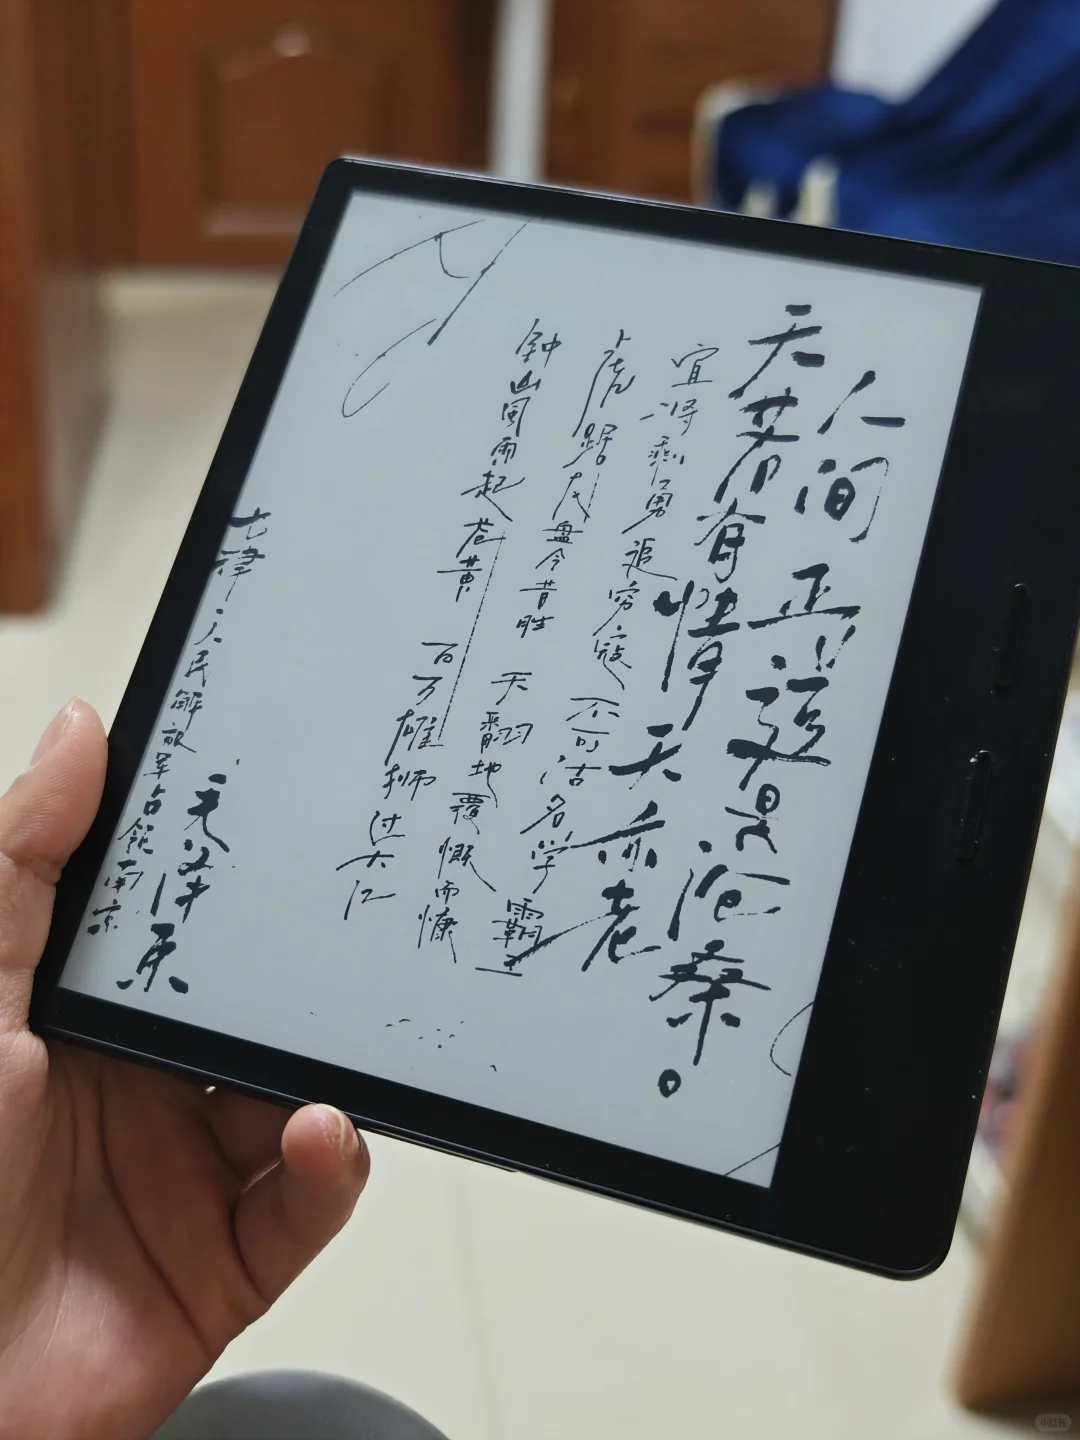 七律·人民解放军占领南京
毛泽东
钟山风雨起苍黄 百万雄师过大江
虎踞龙盘今昔胜 天翻地覆慨而慷
宜将剩勇追穷寇 不可沽名学霸王
天若有情天亦老
人间正道是沧桑。
小红书